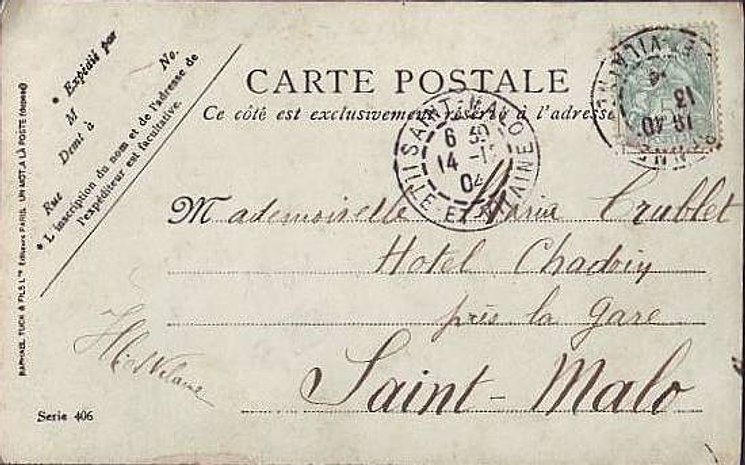 * Expédié par
M No.
Demt à
Rue
* L'inscription du nom et de l'adresse de
l'expéditeur est facultative.
CARTE POSTALE
Ce côté est exclusivement réservé à l'adresse
SAINT-MALO
6 30
14 -1
04
ILLE ET VILAINE
Mademoiselle Maria Trublet
Hotel
près la Gare
Saint-Malo
Ille & Vilaine
RAPHAEL TUCK & FILS Lted Editeurs PARIS. UN MOT A LA POSTE (déposé)
Serie 406